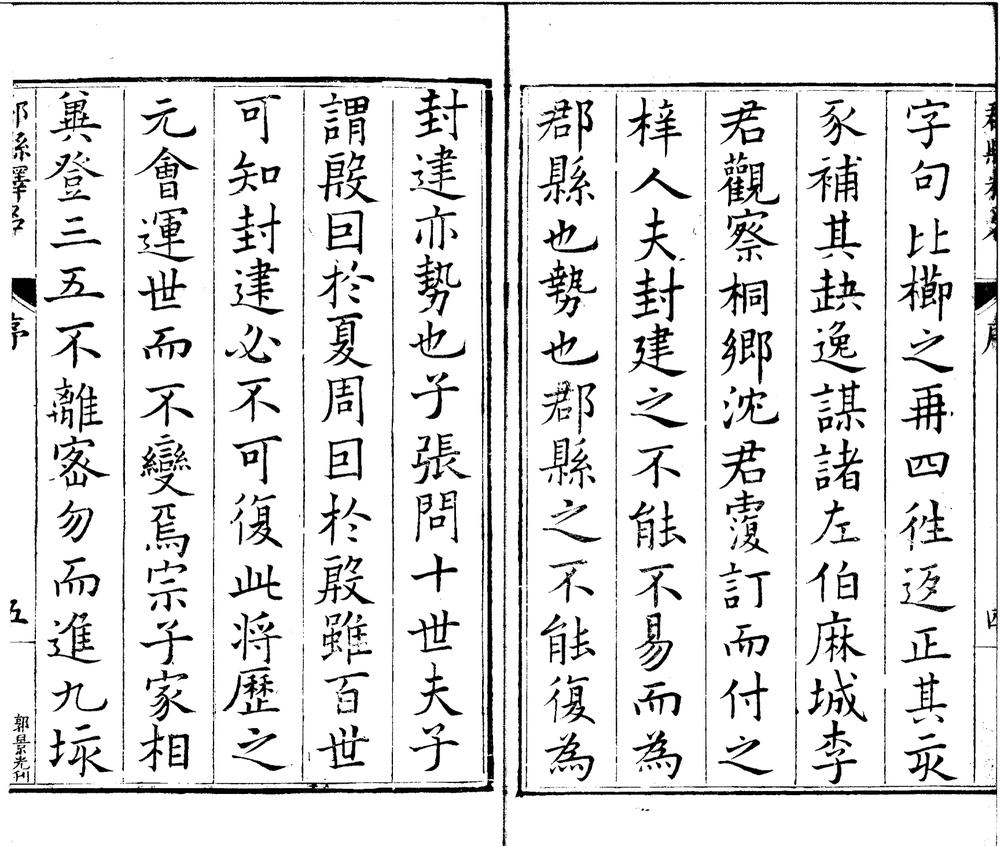 郡縣釋名
序
四
字句比櫛之再四徃返正其亥
豕補其缺逸謀諸左伯麻城李
君觀察桐鄉沈君覆訂而付之
梓人夫封建之不能不易而為
郡縣也勢也郡縣之不能復為
封建亦勢也子張問十世夫子
謂殷囙於夏周囙於殷雖百世
可知封建必不可復此將歷之
元會運世而不變焉宗子家相
冀登三五不離宻勿而進九垓
郡縣釋名
序
五
郭景光刊